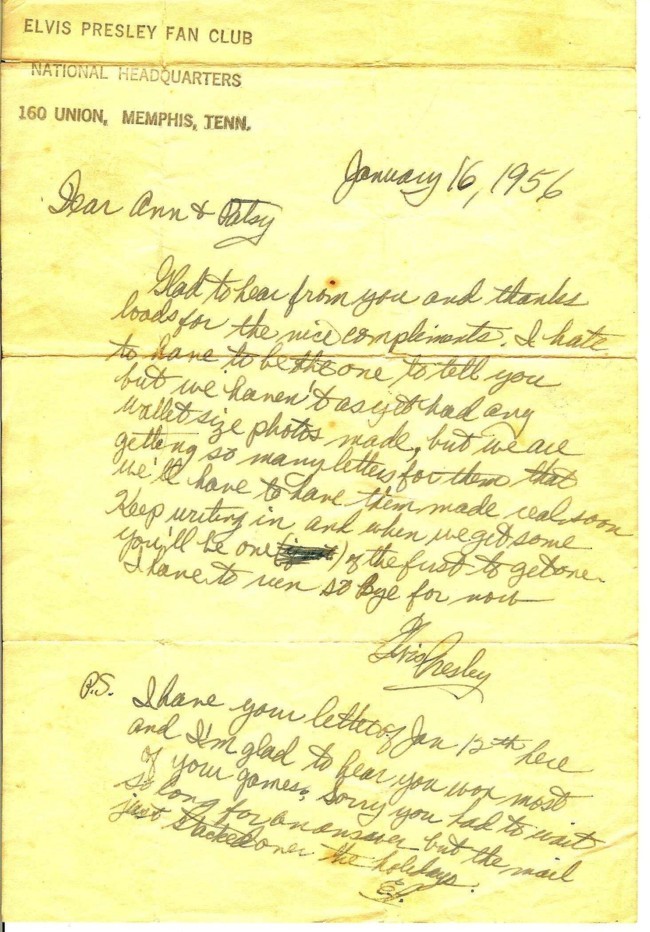 ELVIS PRESLEY FAN CLUB
NATIONAL HEADQUARTERS
160 UNION, MEMPHIS, TENN.
January 16, 1956
Dear Ann & Patsy
Glad to hear from you and thanks
loads for the nice compliments. I hate
to have to be the one to tell you
but we haven't as yet had any
wallet size photos made, but we are
getting so many letters for them that
we'll have to have them made real soon
Keep writing in and when we get some
you'll be one () of the first to get one.
I have to run so bye for now
Elvis Presley
P.S. I have your letter of Jan 12th here
and I'm glad to hear you won most
of your games. Sorry you had to wait
so long for an answer but the mail
just stacked over the holidays.
E.P.